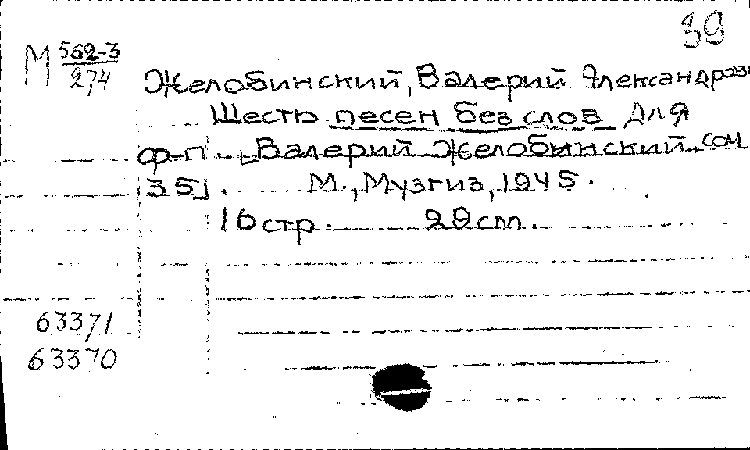 39
М 562-3
274
Желобинский, Валерий Александров
Шесть песен без слов для
ф-п. [Валерий Желобинский. соч
35].   М., Музгиз, 1945.
16 стр.   29 cm.
63371
63370